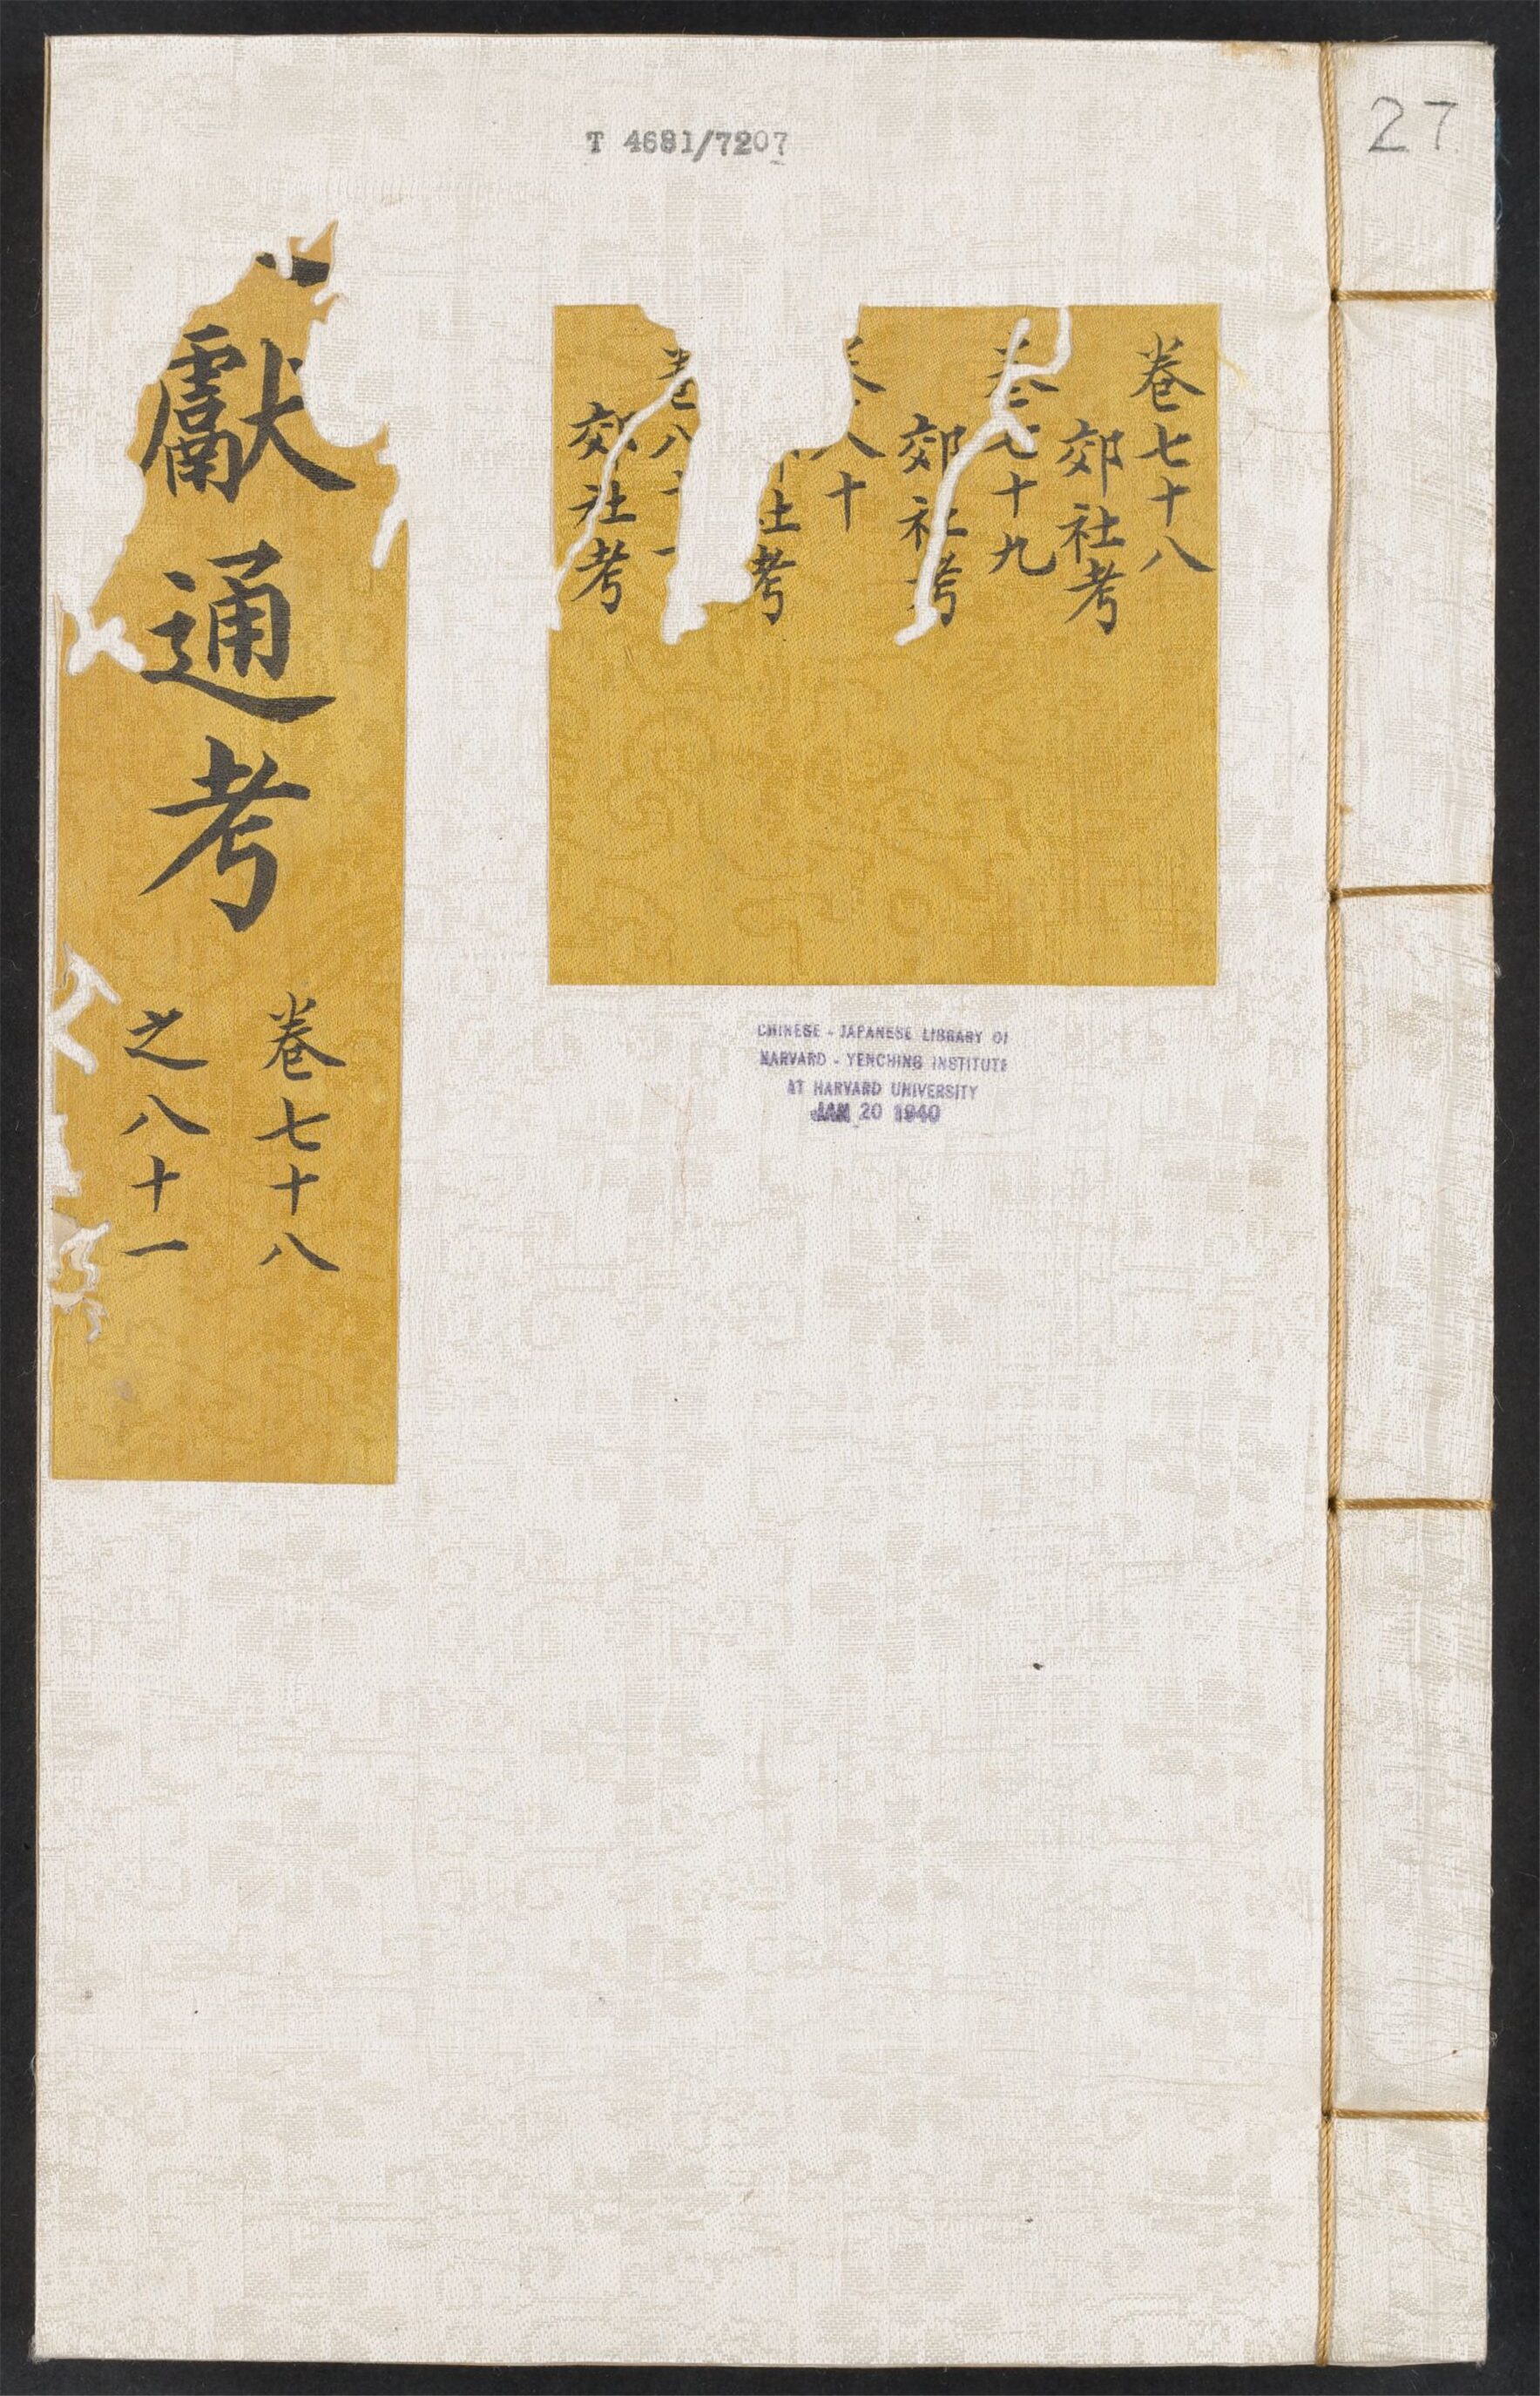 T 4681/7207
27
卷七十八
郊社考
卷七十九
郊社考
八十
社考
卷八十一
郊社考
獻通考
卷七十八
之八十一
CHINESE - JAPANESE LIBRARY OF
HARVARD - YENCHING INSTITUTE
AT HARVARD UNIVERSITY
JAN 20 1940